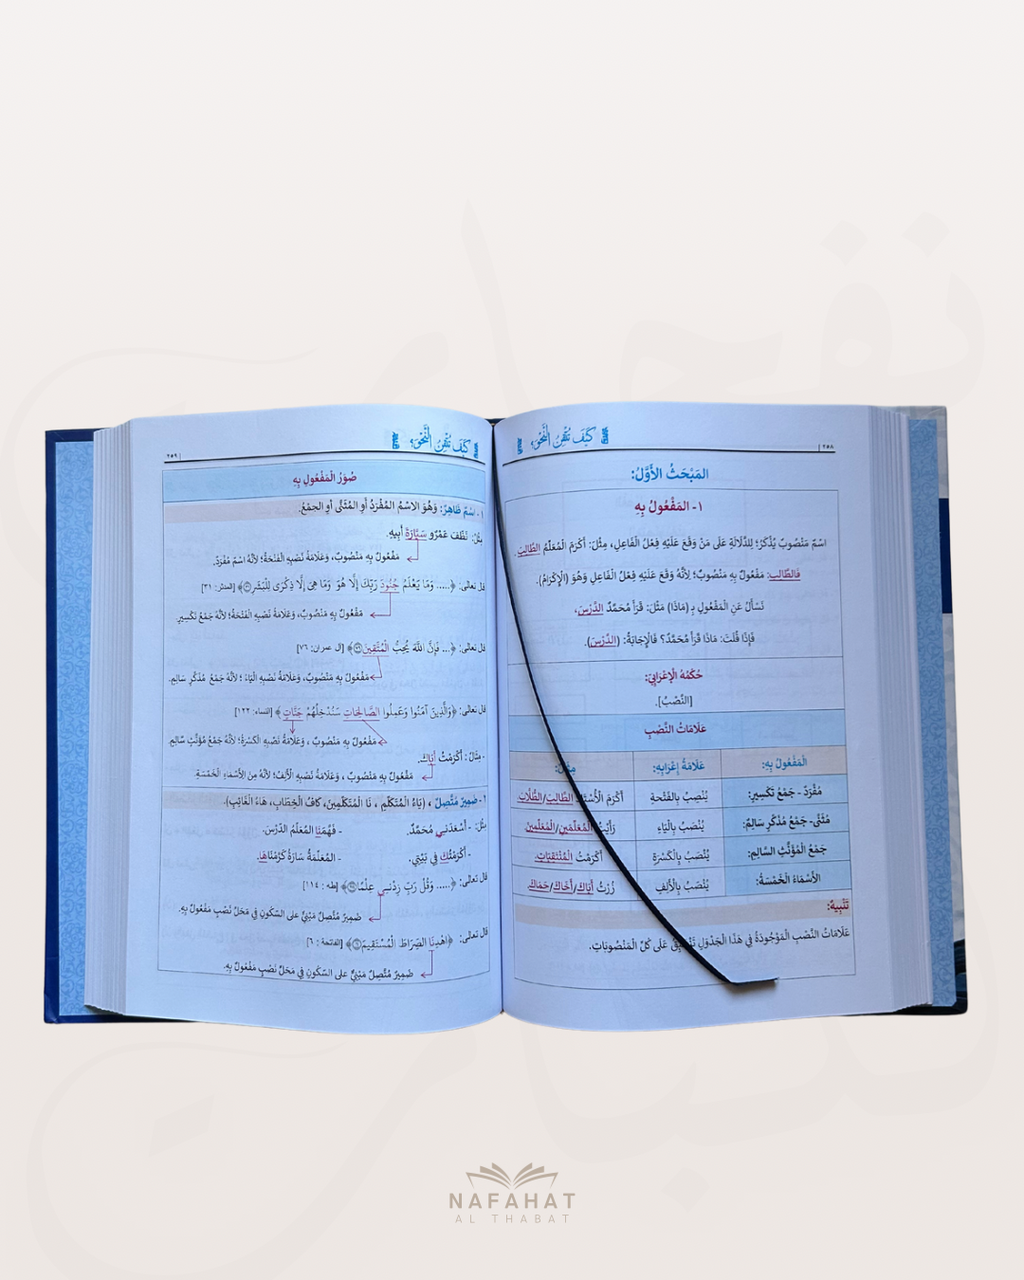 كَيْفَ تُتْقِنُ النَّحْوَ؟
| ٢٥٨
المَبْحَثُ الأَوَّلُ:
١- المَفْعُولُ بِهِ
اسْمٌ مَنْصُوبٌ يُذْكَرُ؛ لِلدَّلَالَةِ عَلَى مَنْ وَقَعَ عَلَيْهِ فِعْلُ الْفَاعِلِ، مِثْلُ: أَكْرَمَ الْمُعَلِّمُ الطَّالِبَ.
فَالطَّالِبَ: مَفْعُولٌ بِهِ مَنْصُوبٌ؛ لِأَنَّهُ وَقَعَ عَلَيْهِ فِعْلُ الْفَاعِلِ وَهُوَ (الْإِكْرَامُ).
نَسْأَلُ عَنِ الْمَفْعُولِ بِـ (مَاذَا) مَثَلُ: قَرَأَ مُحَمَّدٌ الدَّرْسَ،
فَإِذَا قُلْتَ: مَاذَا قَرَأَ مُحَمَّدٌ؟ فَالْإِجَابَةُ: (الدَّرْسَ).
حُكْمُهُ الْإِعْرَابِيّ:
[النَّصْبُ].
عَلَامَاتُ النَّصْبِ
الْمَفْعُولُ بِهِ: عَلَامَةُ إِعْرَابِهِ: مِثْلُ:
مُفْرَدٌ - جَمْعُ تَكْسِيرٍ: يُنْصَبُ بِالْفَتْحَةِ أَكْرَمَ الْأُسْتَاذُ الطَّالِبَ/الطُّلَّابَ.
مُثَنَّى- جَمْعُ مُذَكَّرٍ سَالِمٌ: يُنْصَبُ بِالْيَاءِ رَأَيْتُ الْمُعَلِّمَيْنِ/الْمُعَلِّمِينَ
جَمْعُ الْمُؤَنَّثِ السَّالِمِ: يُنْصَبُ بِالْكَسْرَةِ أَكْرَمْتُ الْمُنْتَقِبَاتِ.
الأَسْمَاءُ الْخَمْسَةُ: يُنْصَبُ بِالْأَلِفِ زُرْتُ أَبَاكَ/أَخَاكَ/حَمَاكَ.
تَنْبِيهٌ:
عَلَامَاتُ النَّصْبِ الْمَوْجُودَةُ فِي هَذَا الْجَدْوَلِ عَلَى كُلِّ الْمَنْصُوبَاتِ.
كَيْفَ تُتْقِنُ النَّحْوَ؟
٢٥٩ |
صُوَرُ الْمَفْعُولِ بِهِ
١- اسْمٌ ظَاهِرٌ: وَهُوَ الاسْمُ الْمُفْرَدُ أَوِ الْمُثَنَّى أَوِ الجَمْعُ.
مِثْلُ: نَظَّفَ عَمْرٌو سَيَّارَةَ أَبِيهِ.
مَفْعُولٌ بِهِ مَنْصُوبٌ، وَعَلَامَةُ نَصْبِهِ الْفَتْحَةُ؛ لِأَنَّهُ اسْمٌ مُفْرَدٌ.
قال تعالى: ﴿..... وَمَا يَعْلَمُ جُنُودَ رَبِّكَ إِلَّا هُوَ وَمَا هِيَ إِلَّا ذِكْرَى لِلْبَشَرِ﴾ [المدثر: ٣١]
مَفْعُولٌ بِهِ مَنْصُوبٌ، وَعَلَامَةُ نَصْبِهِ الْفَتْحَةُ؛ لِأَنَّهُ جَمْعُ تَكْسِيرٍ
قال تعالى: ﴿... فَإِنَّ اللَّهَ يُحِبُّ الْمُتَّقِينَ﴾ [آل عمران: ٧٦]
مَفْعُولٌ بِهِ مَنْصُوبٌ، وَعَلَامَةُ نَصْبِهِ الْيَاءُ ؛ لِأَنَّهُ جَمْعُ مُذَكَّرٍ سَالِمٍ.
قال تعالى: ﴿وَالَّذِينَ آمَنُوا وَعَمِلُوا الصَّالِحَاتِ سَنُدْخِلُهُمْ جَنَّاتٍ ﴾ [النساء: ١٢٢]
مَفْعُولٌ بِهِ مَنْصُوبٌ ، وَعَلَامَةُ نَصْبِهِ الْكَسْرَةُ؛ لِأَنَّهُ جَمْعُ مُؤَنَّثٍ سَالِمٌ.
- مِثَالٌ : أَكْرَمْتُ أَبَاكَ.
مَفْعُولٌ بِهِ مَنْصُوبٌ ، وَعَلَامَةُ نَصْبِهِ الْأَلِفُ؛ لِأَنَّهُ مِنَ الأَسْمَاءِ الْخَمْسَةِ.
٢- ضَمِيرٌ مُتَّصِلٌ ، (يَاءُ الْمُتَكَلِّمِ ، نَا الْمُتَكَلِّمِينَ، كَافُ الْخِطَابِ، هَاءُ الْغَائِبِ).
مِثْلُ: - أَسْعَدَنِي مُحَمَّدٌ. - فَهَّمَنَا الْمُعَلِّمُ الدَّرْسَ.
- أَكْرَمْتُكَ فِي بَيْتِي. - الْمُعَلِّمَةُ سَارَةُ كَرَّمْنَاهَا.
قال تعالى: ﴿..... وَقُلْ رَبِّ زِدْنِي عِلْمًا﴾ [طه : ١١٤]
ضَمِيرٌ مُتَّصِلٌ مَبْنِيٌّ عَلَى السُّكُونِ فِي مَحَلِّ نَصْبٍ مَفْعُولٌ بِهِ.
قال تعالى: ﴿اهْدِنَا الصِّرَاطَ الْمُسْتَقِيمَ﴾ [الفاتحة : ٦]
ضَمِيرٌ مُتَّصِلٌ مَبْنِيٌّ عَلَى السُّكُونِ فِي مَحَلِّ نَصْبٍ مَفْعُولٌ بِهِ.
NAFAHAT
AL THABAT